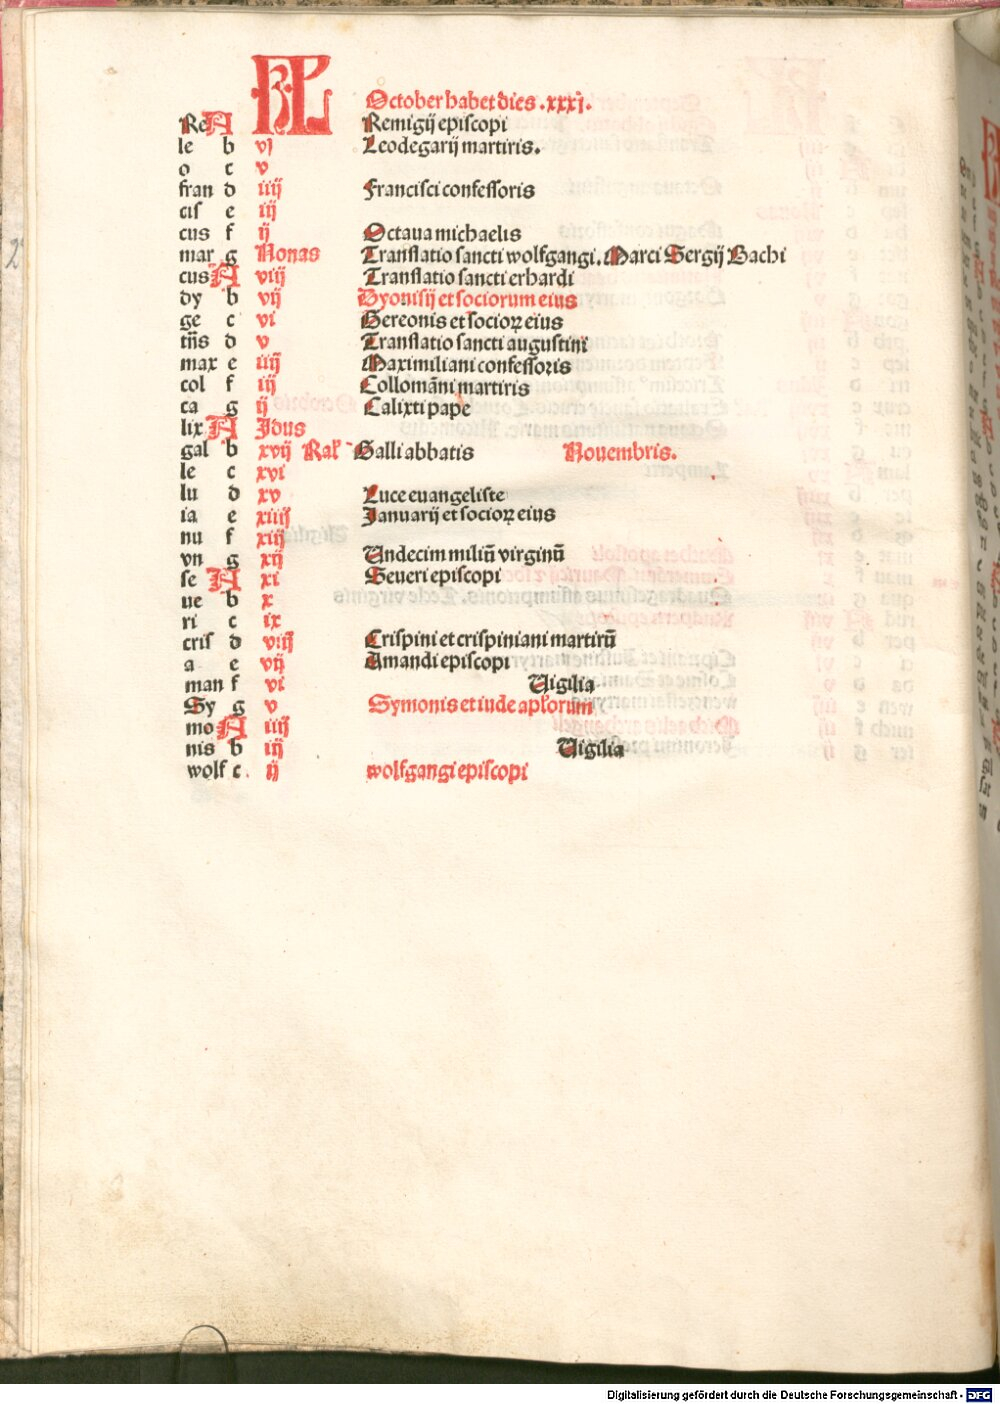 KL October habet dies .xxxi.
Re A Remigij episcopi
le b vj Leodegarij martiris.
o c v
fran d iiij Francisci confessoris
cis e iij
cus f ij Octaua michaelis
mar g Nonas Translatio sancti wolfgangi. Marci Sergij Bachi
cus A viij Translatio sancti erhardi
dy b vij Dyonisij et sociorum eius
ge c vi Gereonis et socioꝝ eius
tñs d v Translatio sancti augustini
max e iiij Maximiliani confessoris
col f iij Collomãni martiris
ca g ij Calixti pape
lix A Idus
gal b xvij Kal' Galli abbatis Nouembris.
le c xvi
lu d xv Luce euangeliste
ia e xiiij Januarij et socioꝝ eius
nu f xiij
vn g xij Undecim miliũ virginũ
se A xi Seueri episcopi
ue b x
ri c ix
cris d viij Crispini et crispiniani martirũ
a e vij Amandi episcopi
man f vi Uigilia
Sy g v Symonis et iude apl'orum
mo A iiij
nis b iij Uigilia
wolf c. ij wolfgangi episcopi
2
Digitalisierung gefördert durch die Deutsche Forschungsgemeinschaft - DFG